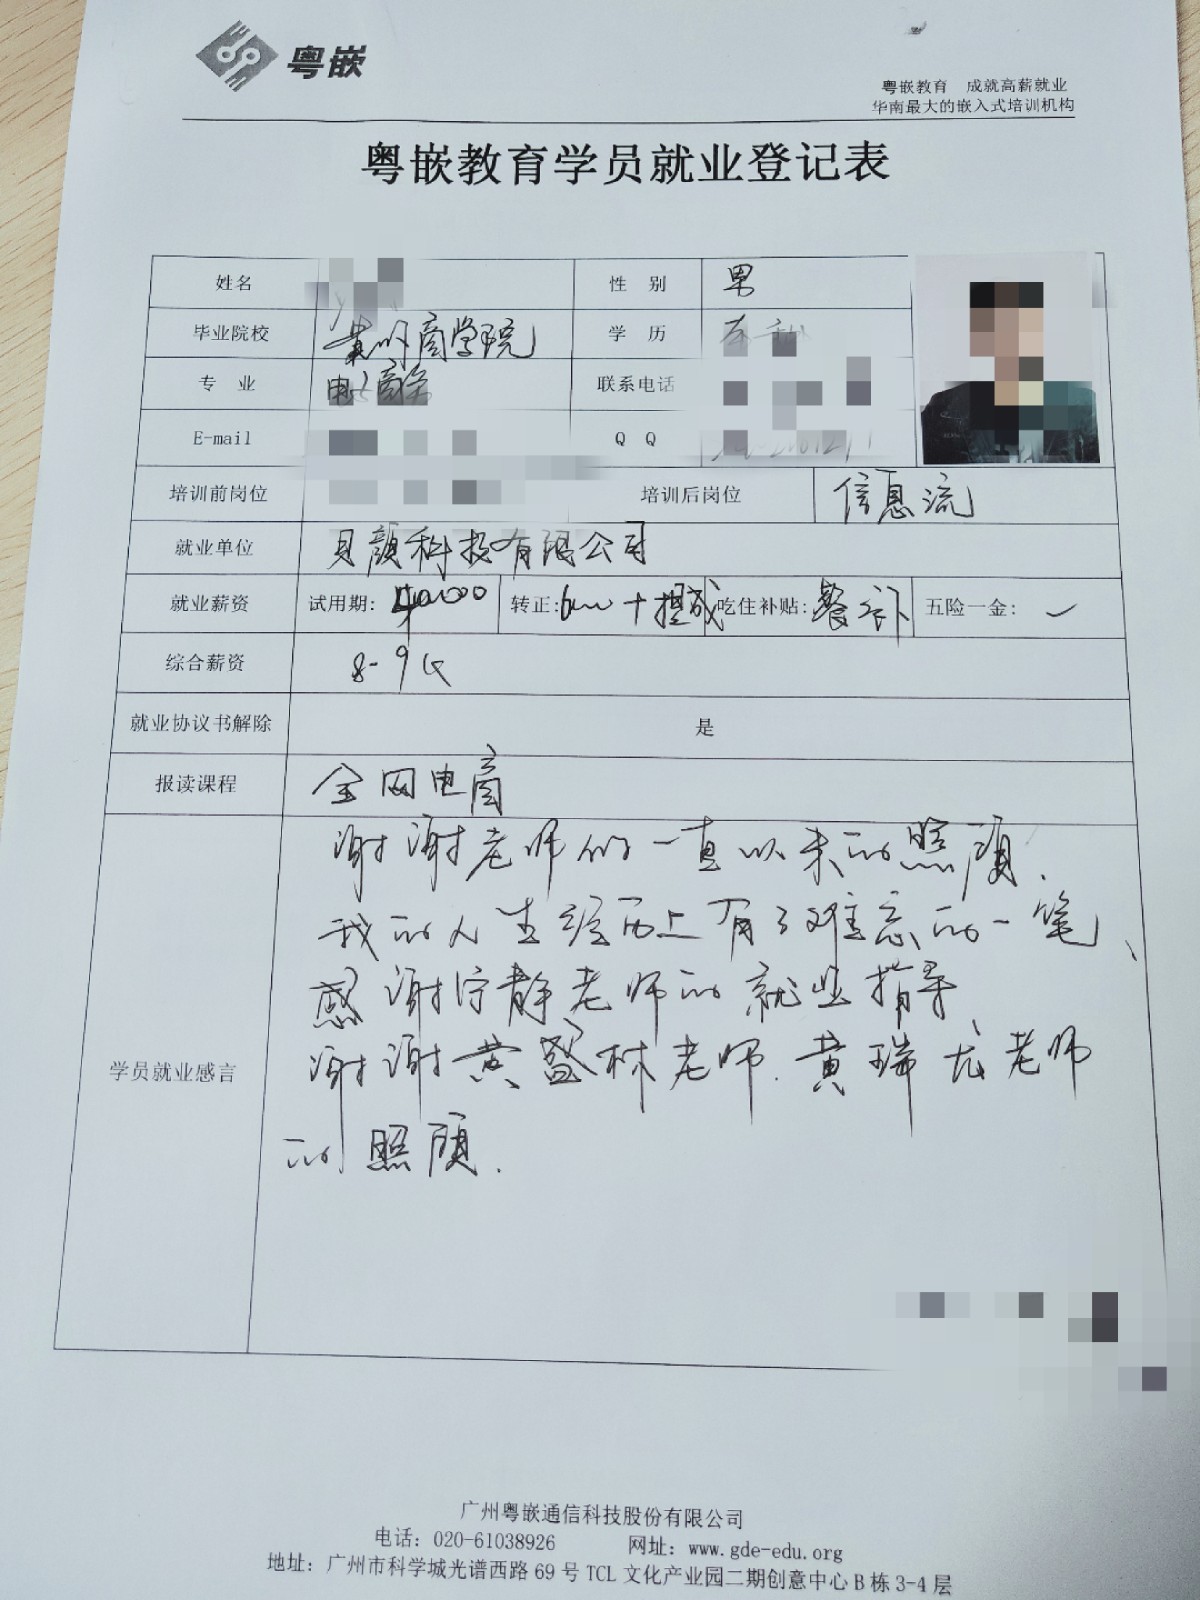 粤嵌
粤嵌教育 成就高薪就业
华南最大的嵌入式培训机构
粤嵌教育学员就业登记表
姓名 性 别 男
毕业院校 商学院 学 历
专 业 电子商务 联系电话
E-mail Q Q
培训前岗位 培训后岗位 信息流
就业单位 贝颜科技有限公司
就业薪资 试用期: 转正: +提成 吃住补贴: 餐补 五险一金: ✓
综合薪资 8-9K
就业协议书解除 是
报读课程 全网电商
学员就业感言
谢谢老师们一直以来的照顾.
我的人生经历上有了难忘的一笔、
感谢宁静老师的就业指导
谢谢黄盛林老师.黄瑞龙老师
的照顾.
广州粤嵌通信科技股份有限公司
电话: 020-61038926 网址: www.gde-edu.org
地址: 广州市科学城光谱西路 69 号 TCL 文化产业园二期创意中心 B 栋 3-4 层